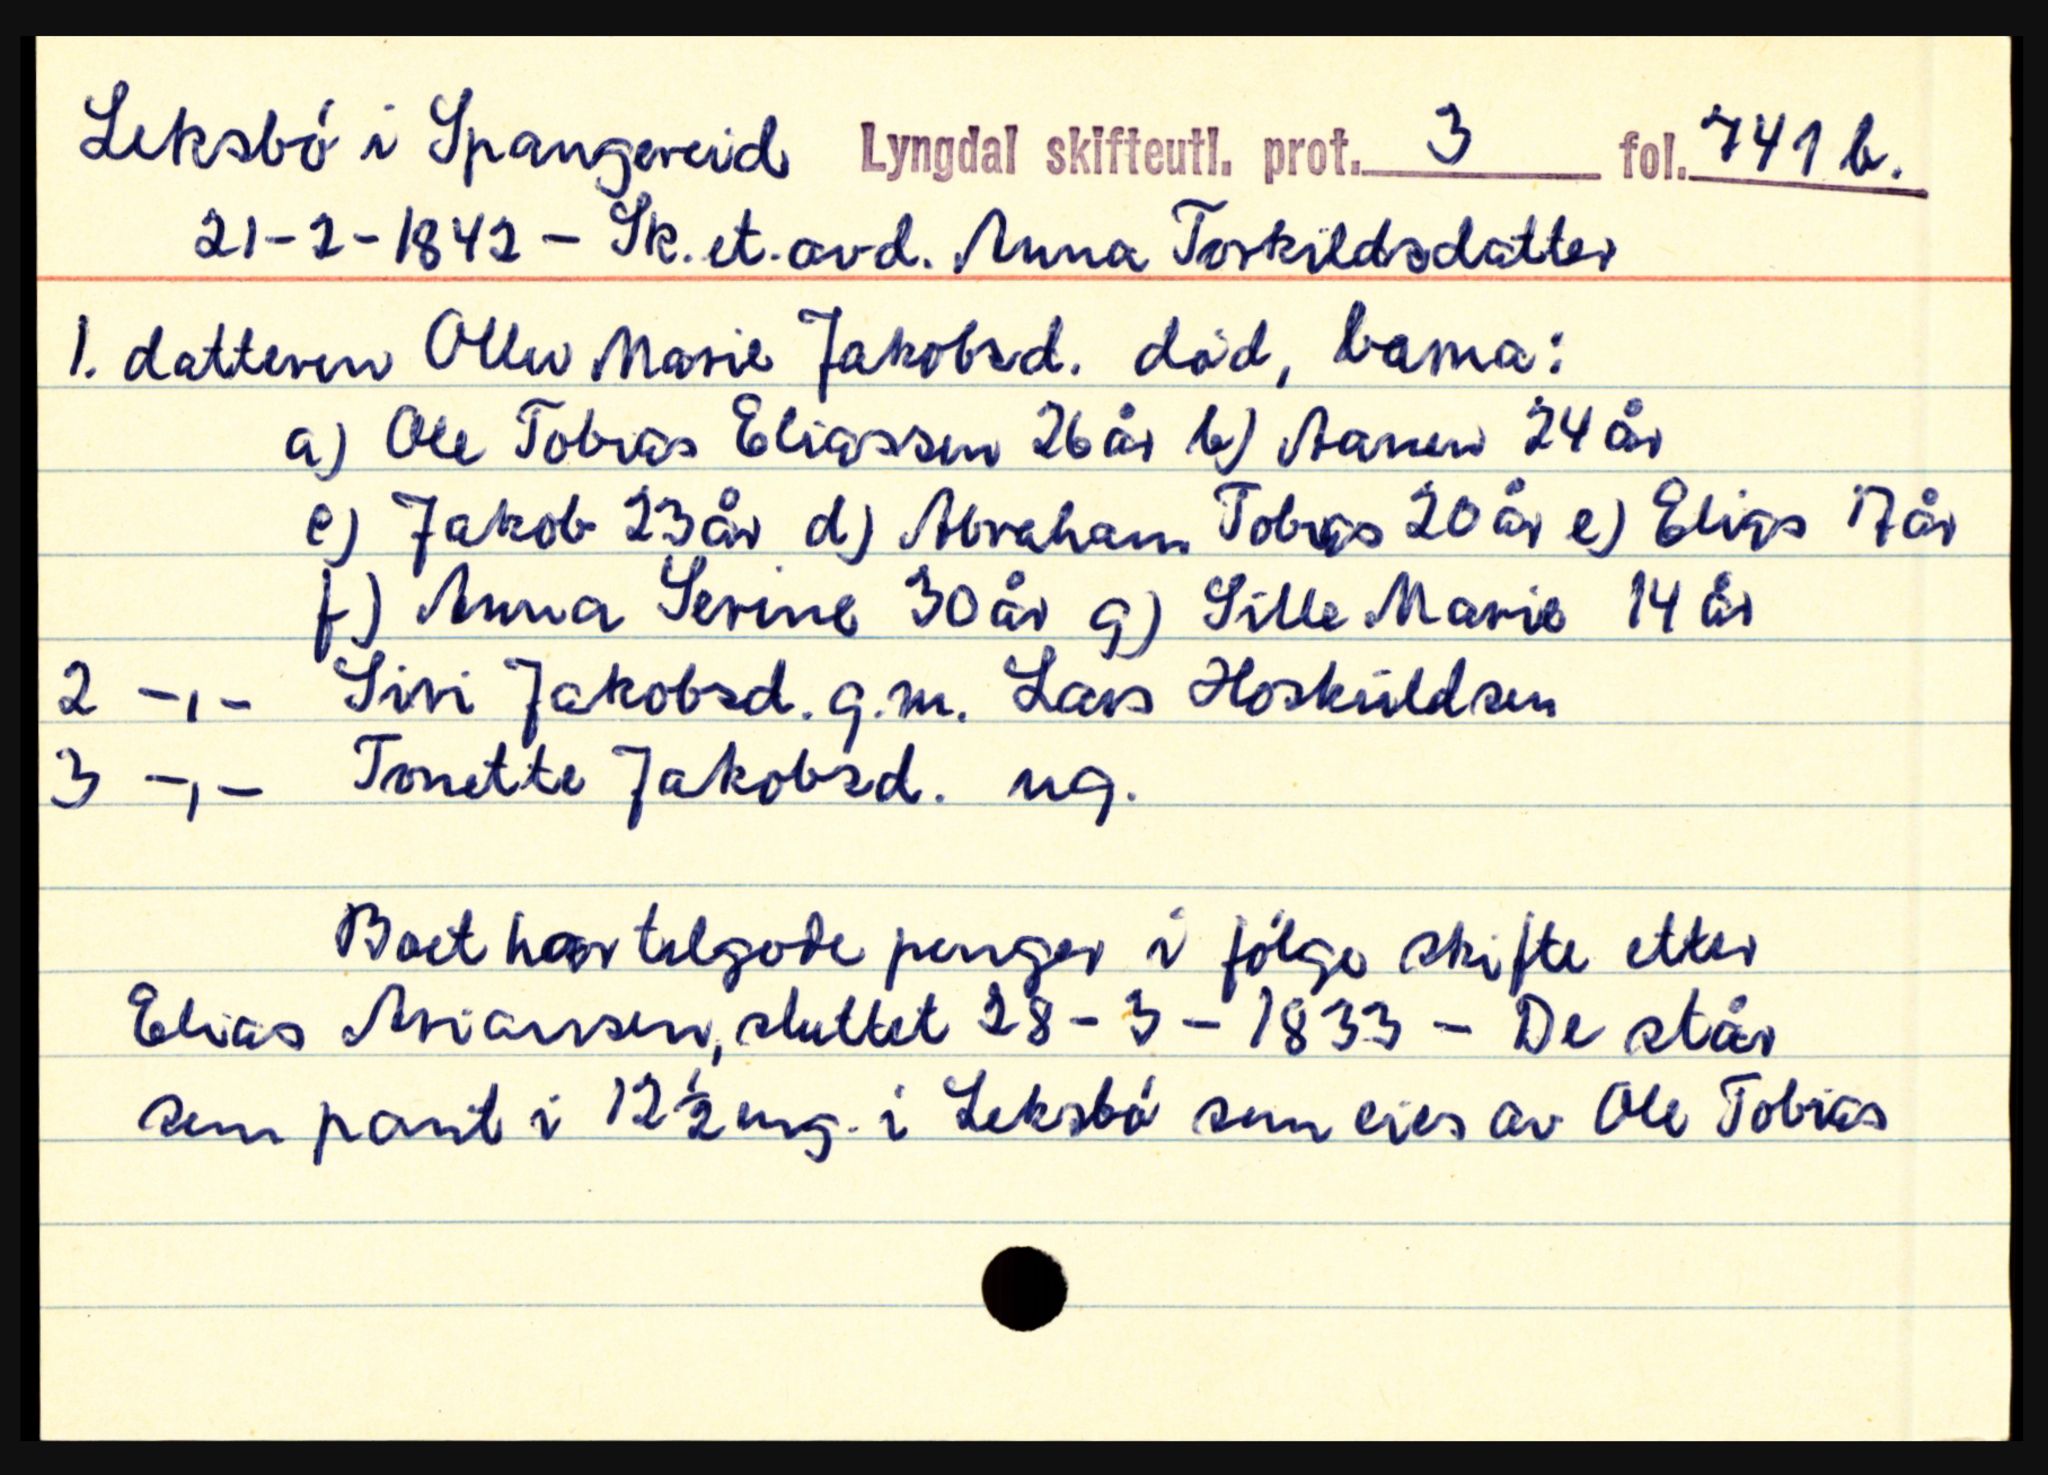 Leksbö i Spangereid Lyngdal skifteutl. prot. 3 fol. 741 b.
21-2-1842 - Sk. et. avd. Anna Torkildsdatter
1. datteren Ollu Marie Jakobsd. död, barna:
a) Ole Tobias Eliassen 26 år b) Aanen 24 år
c) Jakob 23 år d) Abraham Tobias 20 år e) Elias 17 år
f) Anna Serine 30 år g) Sille Marie 14 år
2 -,- Sivi Jakobsd. g.m. Lars Hoskuldsen
3 -,- Tonette Jakobsd. ug.
Boet har tilgode penger i fölge skifte etter
Elias Ariansen, sluttet 28-3-1833 - De står
som pant i 12½ mg. i Leksbö som eies av Ole Tobias